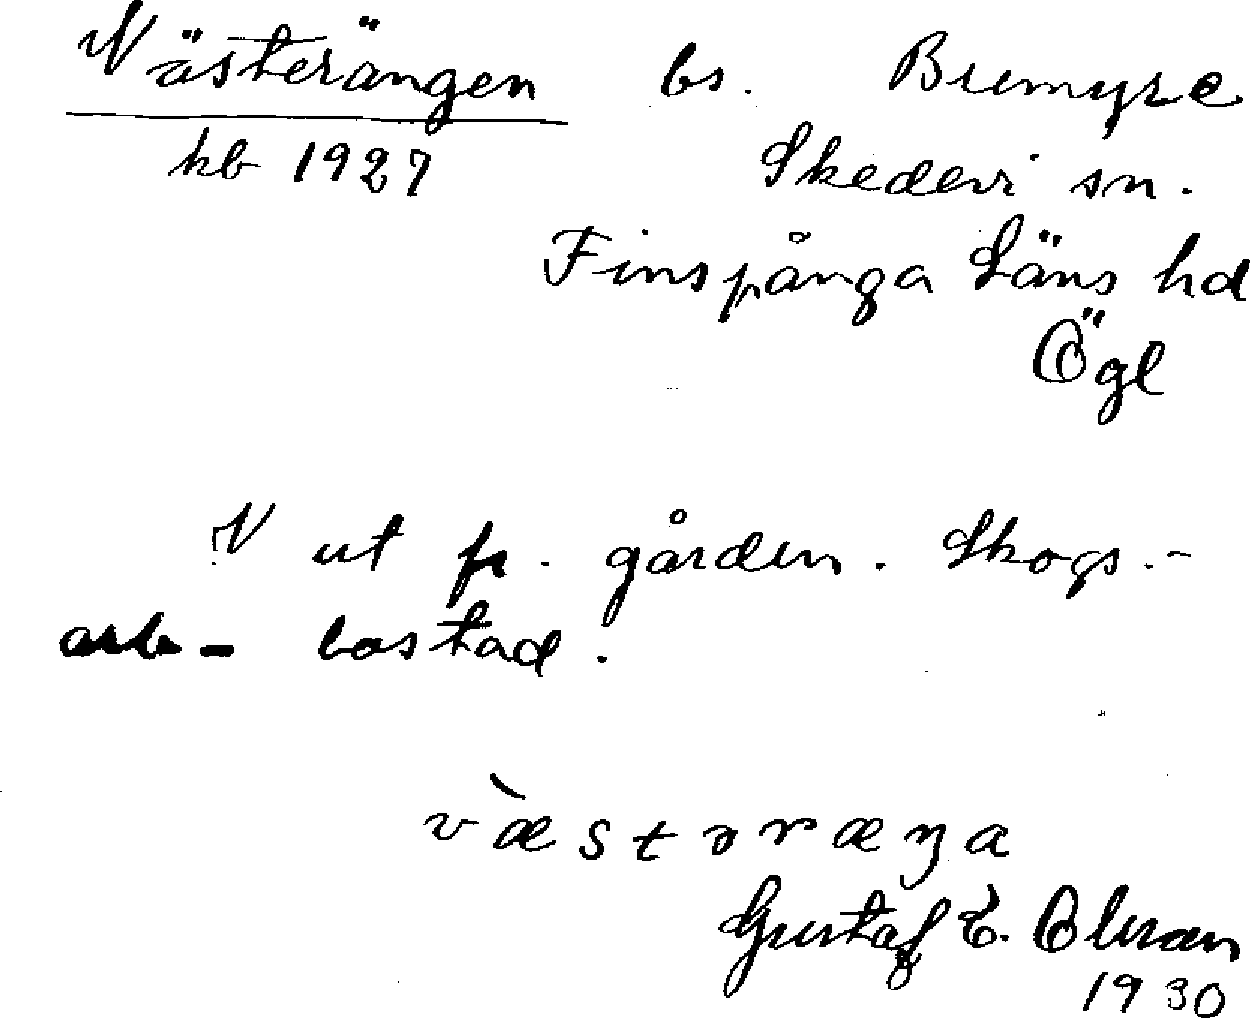 Västerängen bs. Bremyre
kb 1927 Skedevi sn.
Finspånga Läns hd
Ögl
V ut fr. gården. Skogs.-
arb- bostad.
v̀æstəræŋa
Gustaf E. Olson
1930